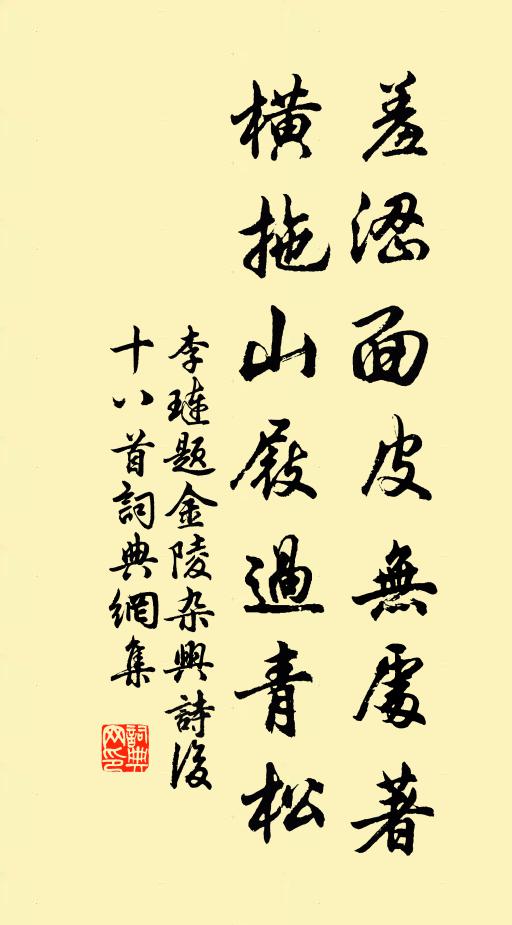 羞涩面皮無處著
橫拖山屐過青松
李璉题金陵杂興詩後
十八首詞典網集
詞典
网印